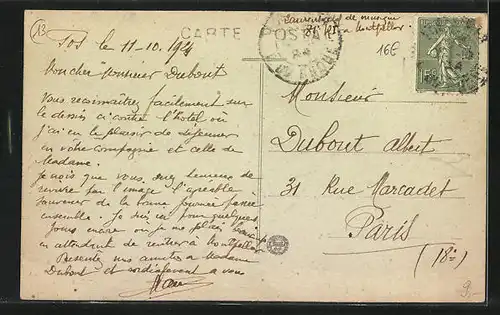 13
Fos 11-10. 1924
CARTE POSTALE
de musique
Montpellier
16E
RHONE
15c
Mon cher Monsieur Dubout
Vous reconnaîtrez facilement sur
le dessin ci contre l'hôtel où
j'ai eu le plaisir de déjeuner
en votre compagnie et celle de
Madame.
Je crois que vous serez heureux de
revivre par l'image l'agréable
souvenir de la bonne journée passée
ensemble. Je suis ici pour quelques
jours encore où je me plais beaucoup
en attendant de rentrer à Montpellier
Présentez mes amitiés à Madame
Dubout et cordialement à vous
Monsieur
Dubout Albert
31 Rue Marcadet
Paris
(18e)
9.-